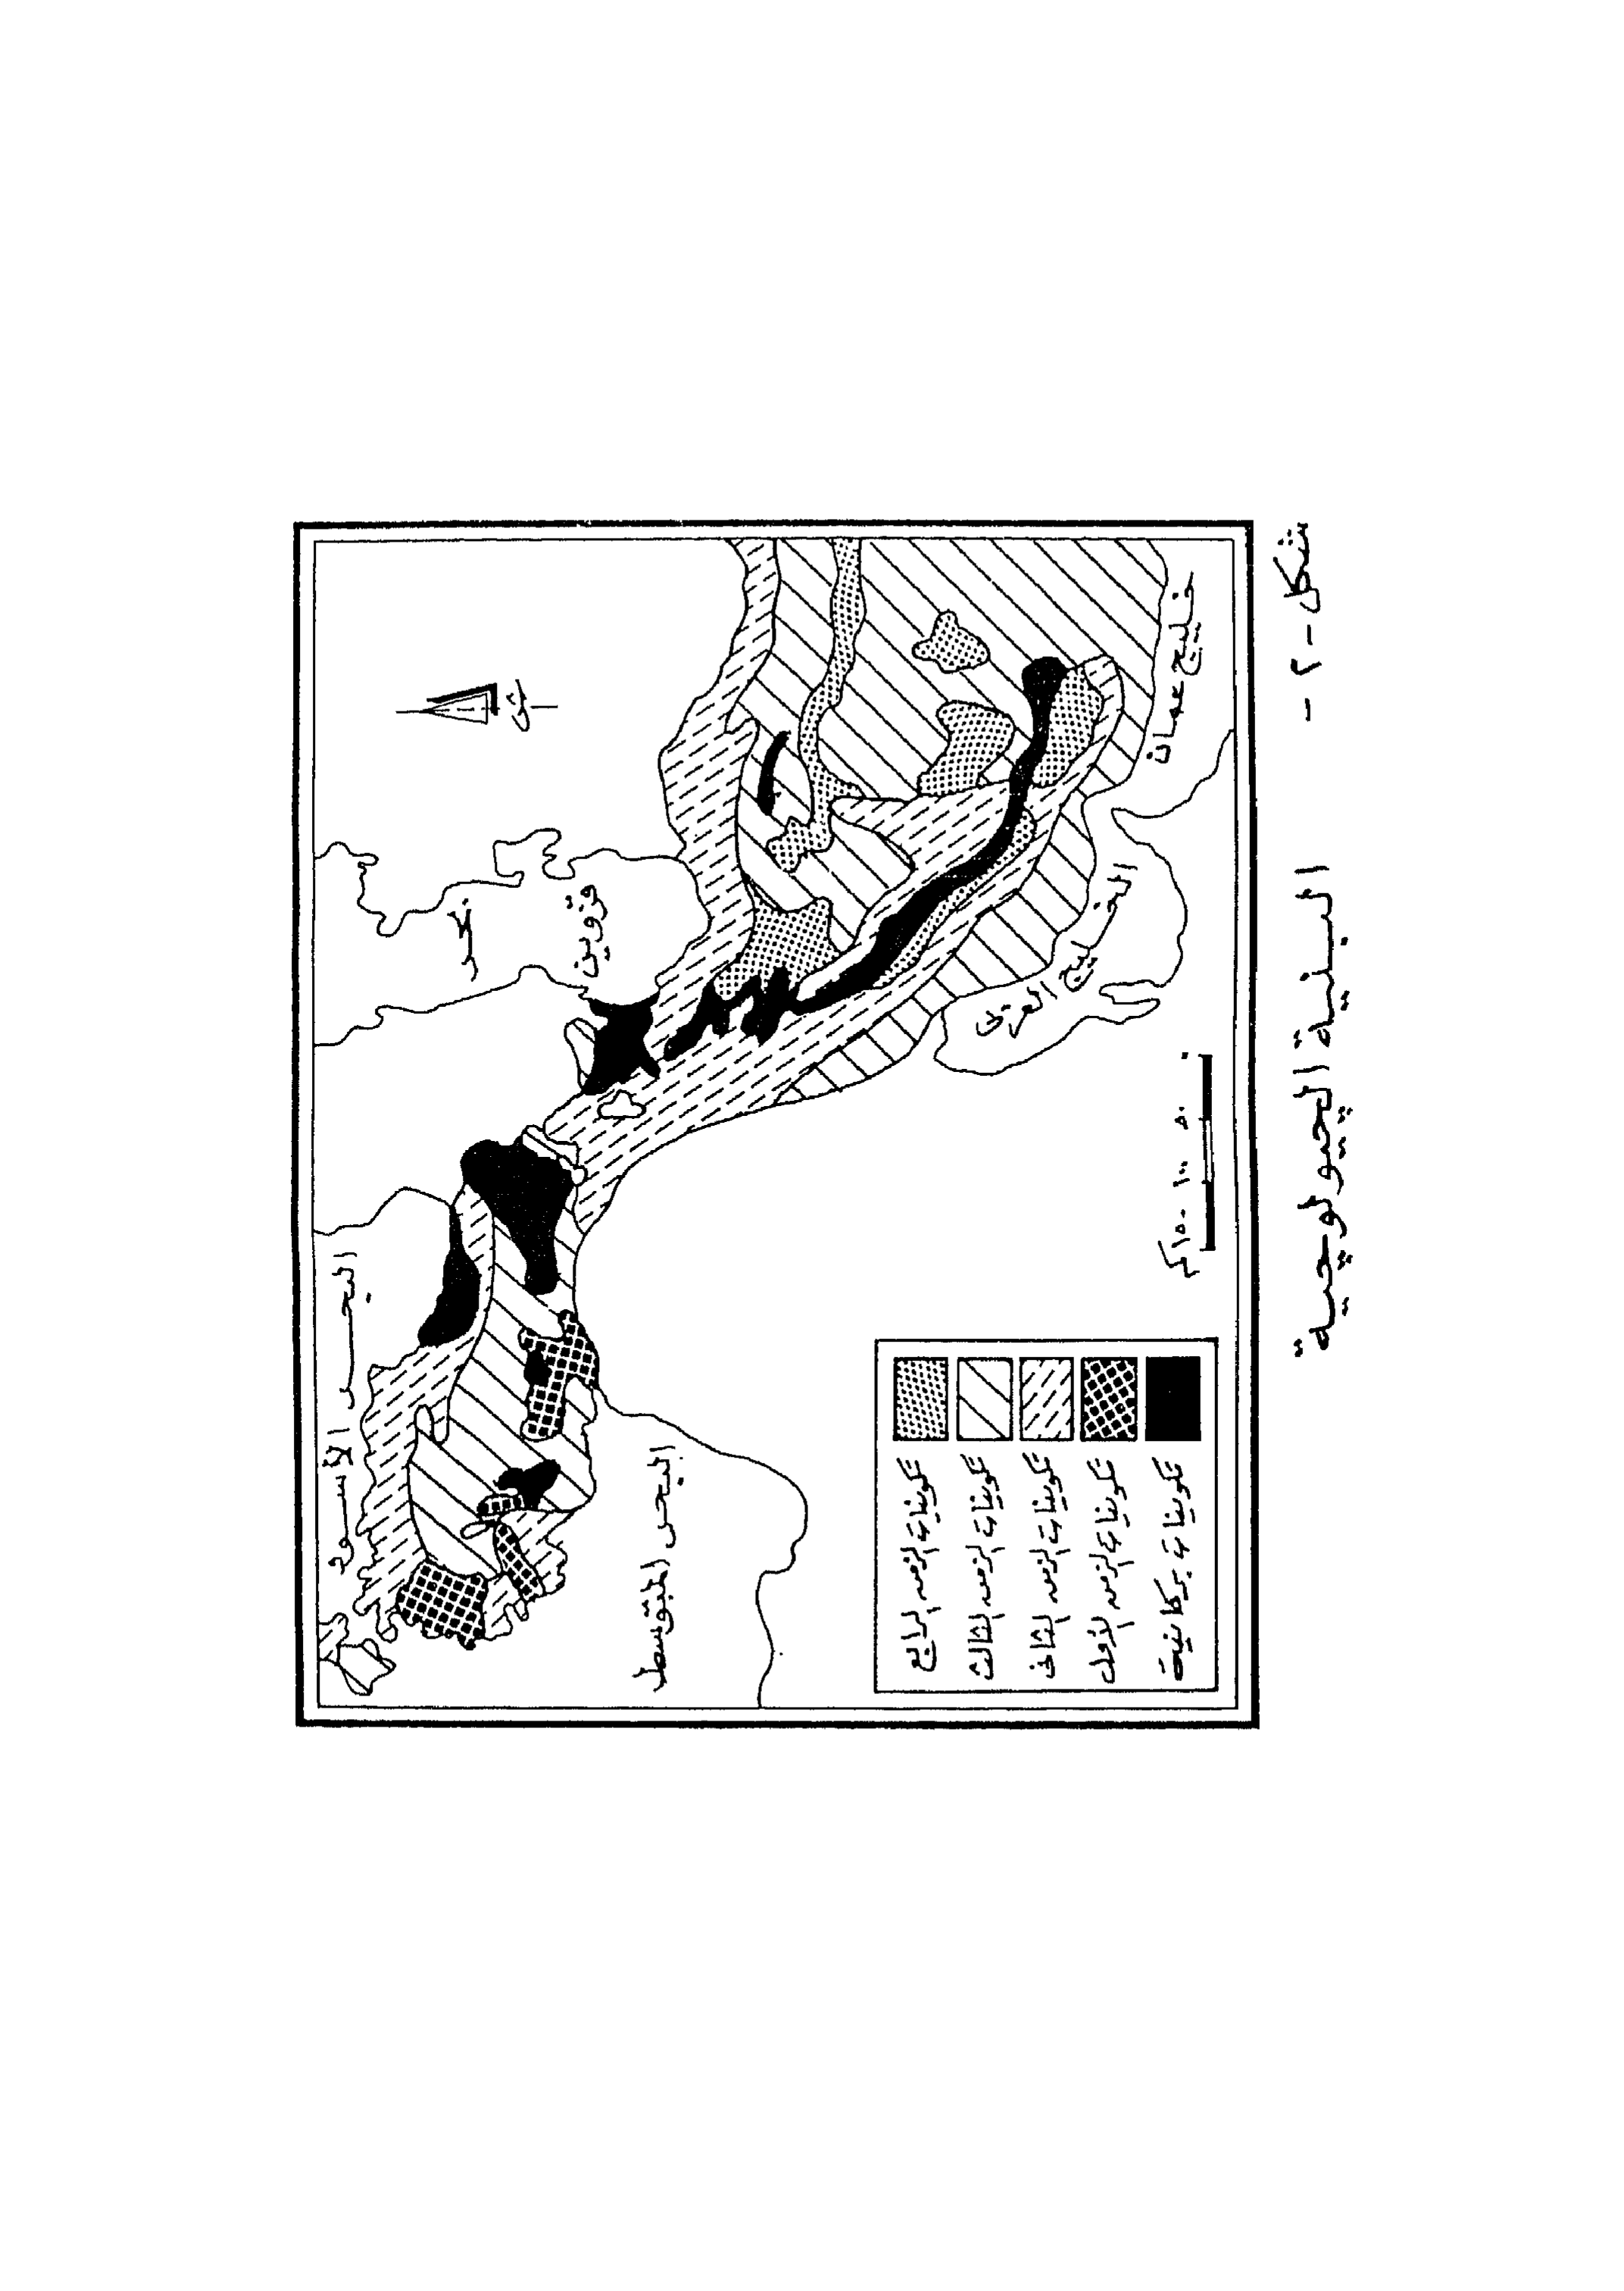 البحر الأسود
بحر
قزوين
ش
البحر المتوسط
الخليج العربي
خليج عمان
تكوينات الزمن الرابع
تكوينات الزمن الثالث
تكوينات الزمن الثاني
تكوينات الزمن الأول
تكوينات بركانية
٠ ٥٠ ١٠٠ ١٥٠ كم
شكل -٢-
البنية الجيولوجية